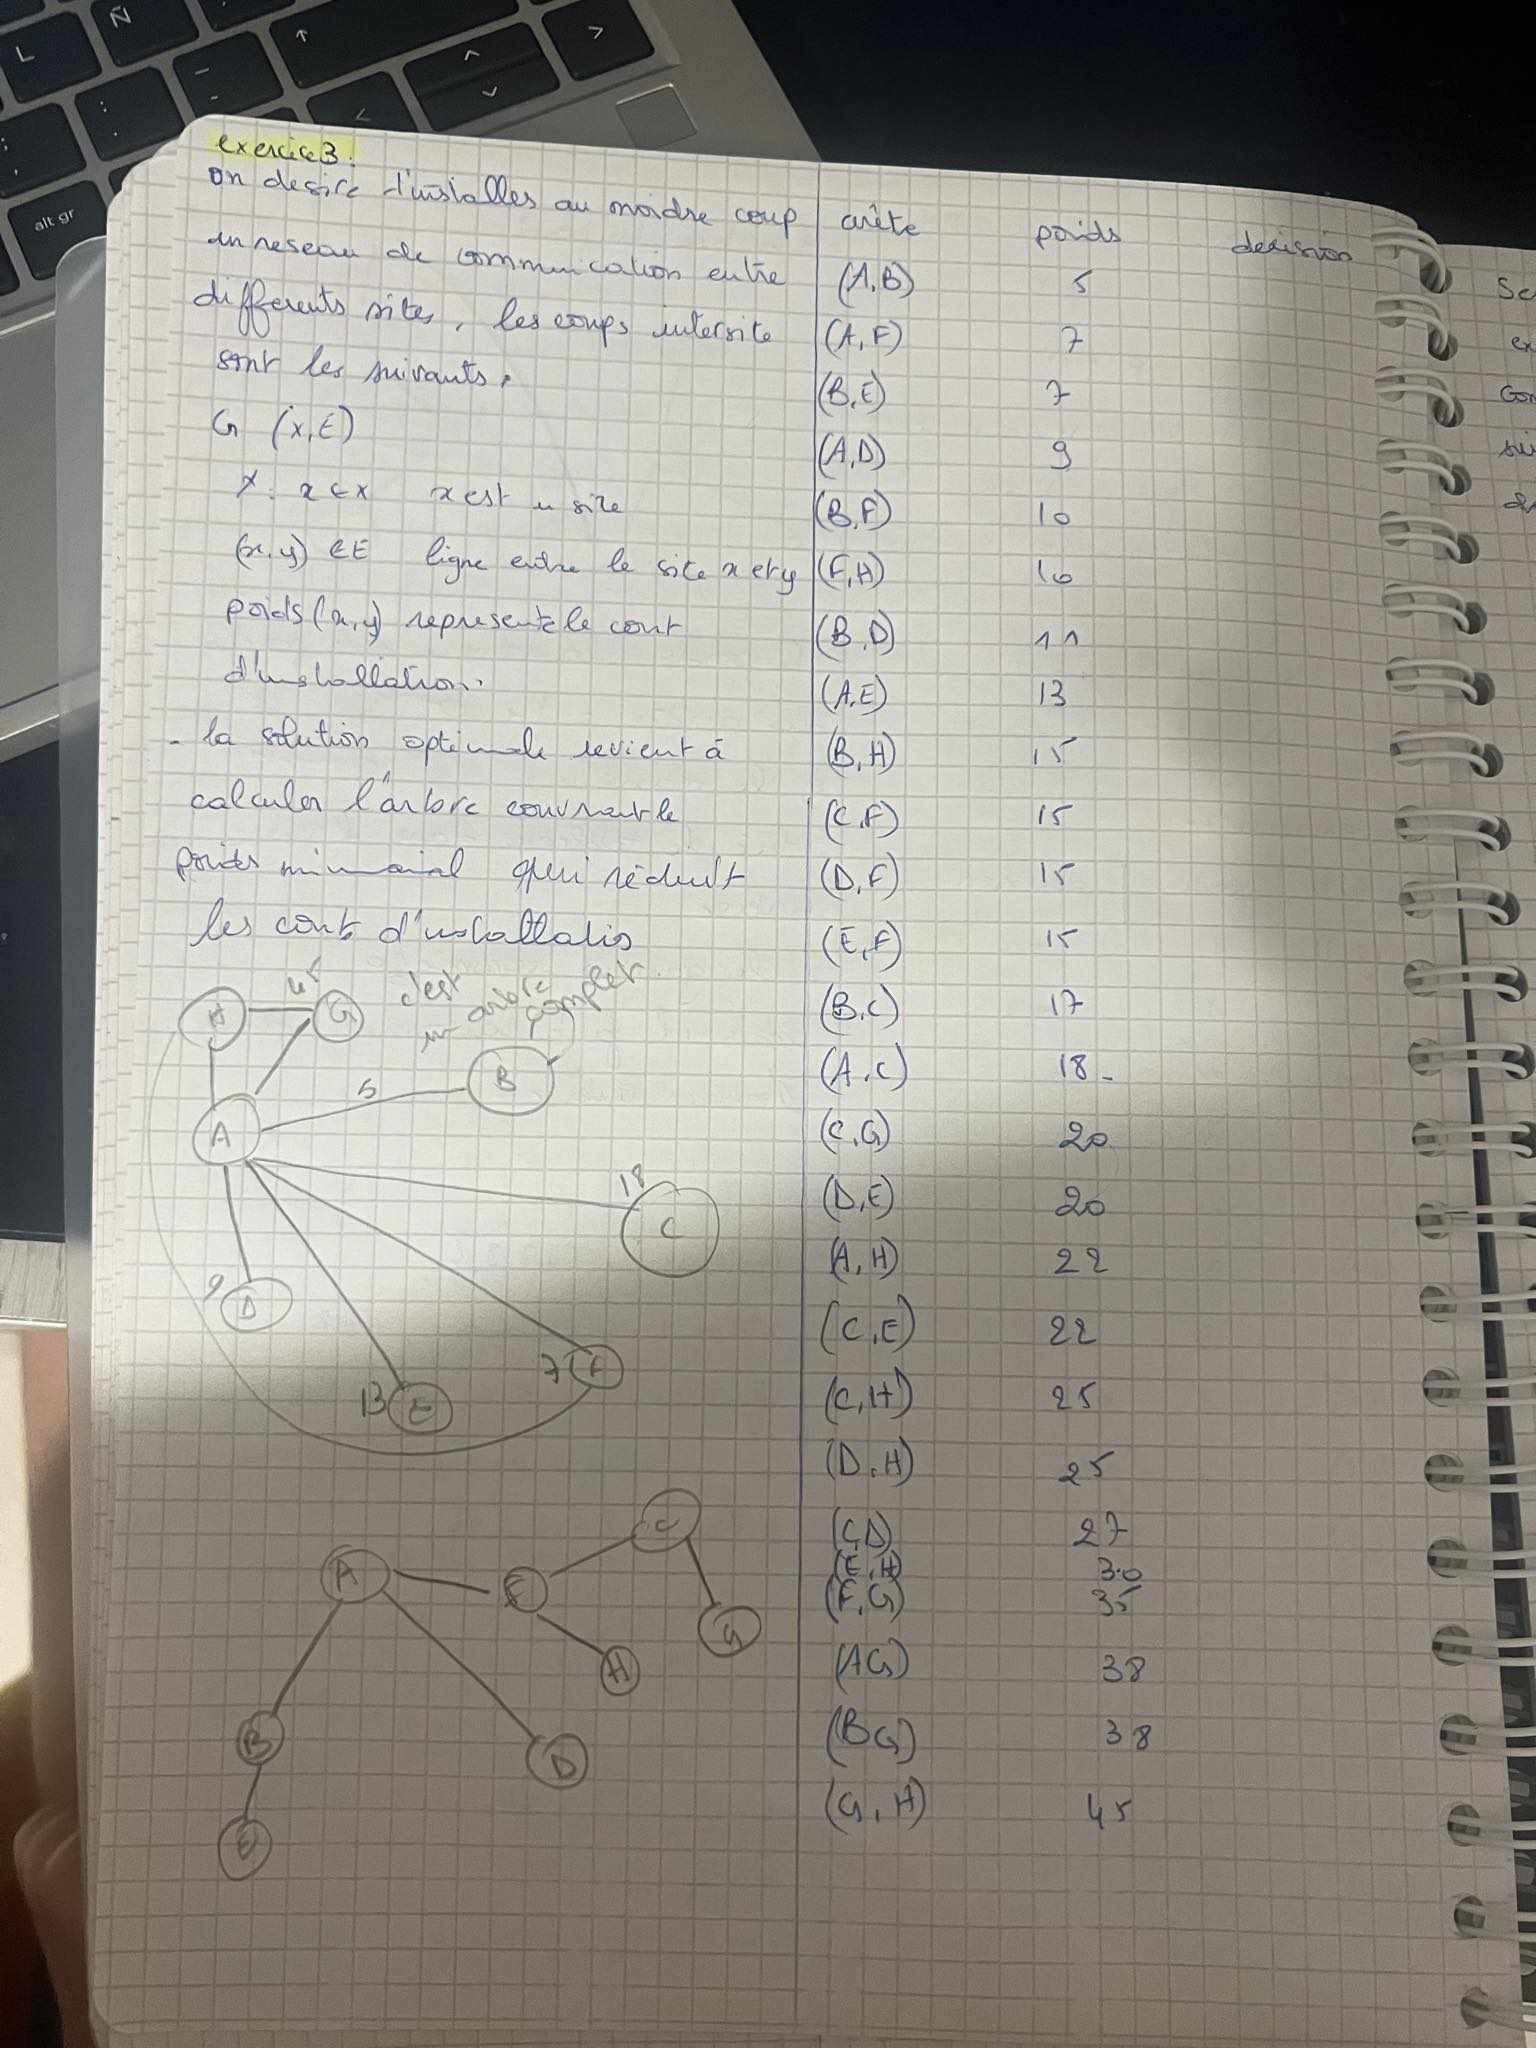 exercice 3 :
on desire d'installes au moidre coup
un reseau de communication entre
differents sites, les coups intersite
sont les suivants.
G (x, E)
X : x ∈ x x est u site
(x, y) ∈ E ligne entre le site x et y
poids (x, y) represente le cout
d'installation.
- la solution optimale revient à
calculer l'arbre couvrant le
poids minimal qui réduit
les cout d'installatio
c'est
un arbre complet
H 45 G
A 5 B
18 C
9 D
13 E
7 F
A F C
H G
B D
E
arête poids decision
(A,B) 5
(A,F) 7
(B,E) 7
(A,D) 9
(B,F) 10
(F,H) 10
(B,D) 11
(A,E) 13
(B,H) 15
(C,F) 15
(D,F) 15
(E,F) 15
(B,C) 17
(A,C) 18
(C,G) 20
(D,E) 20
(A,H) 22
(C,E) 22
(C,H) 25
(D,H) 25
(C,D) 27
(E,H) 30
(F,G) 35
(AG) 38
(BG) 38
(G,H) 45
L Ñ
alt gr